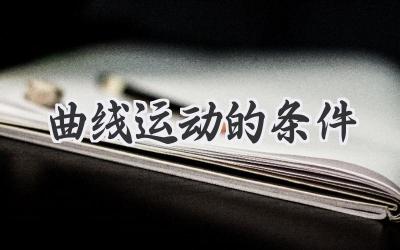 曲线运动的条件